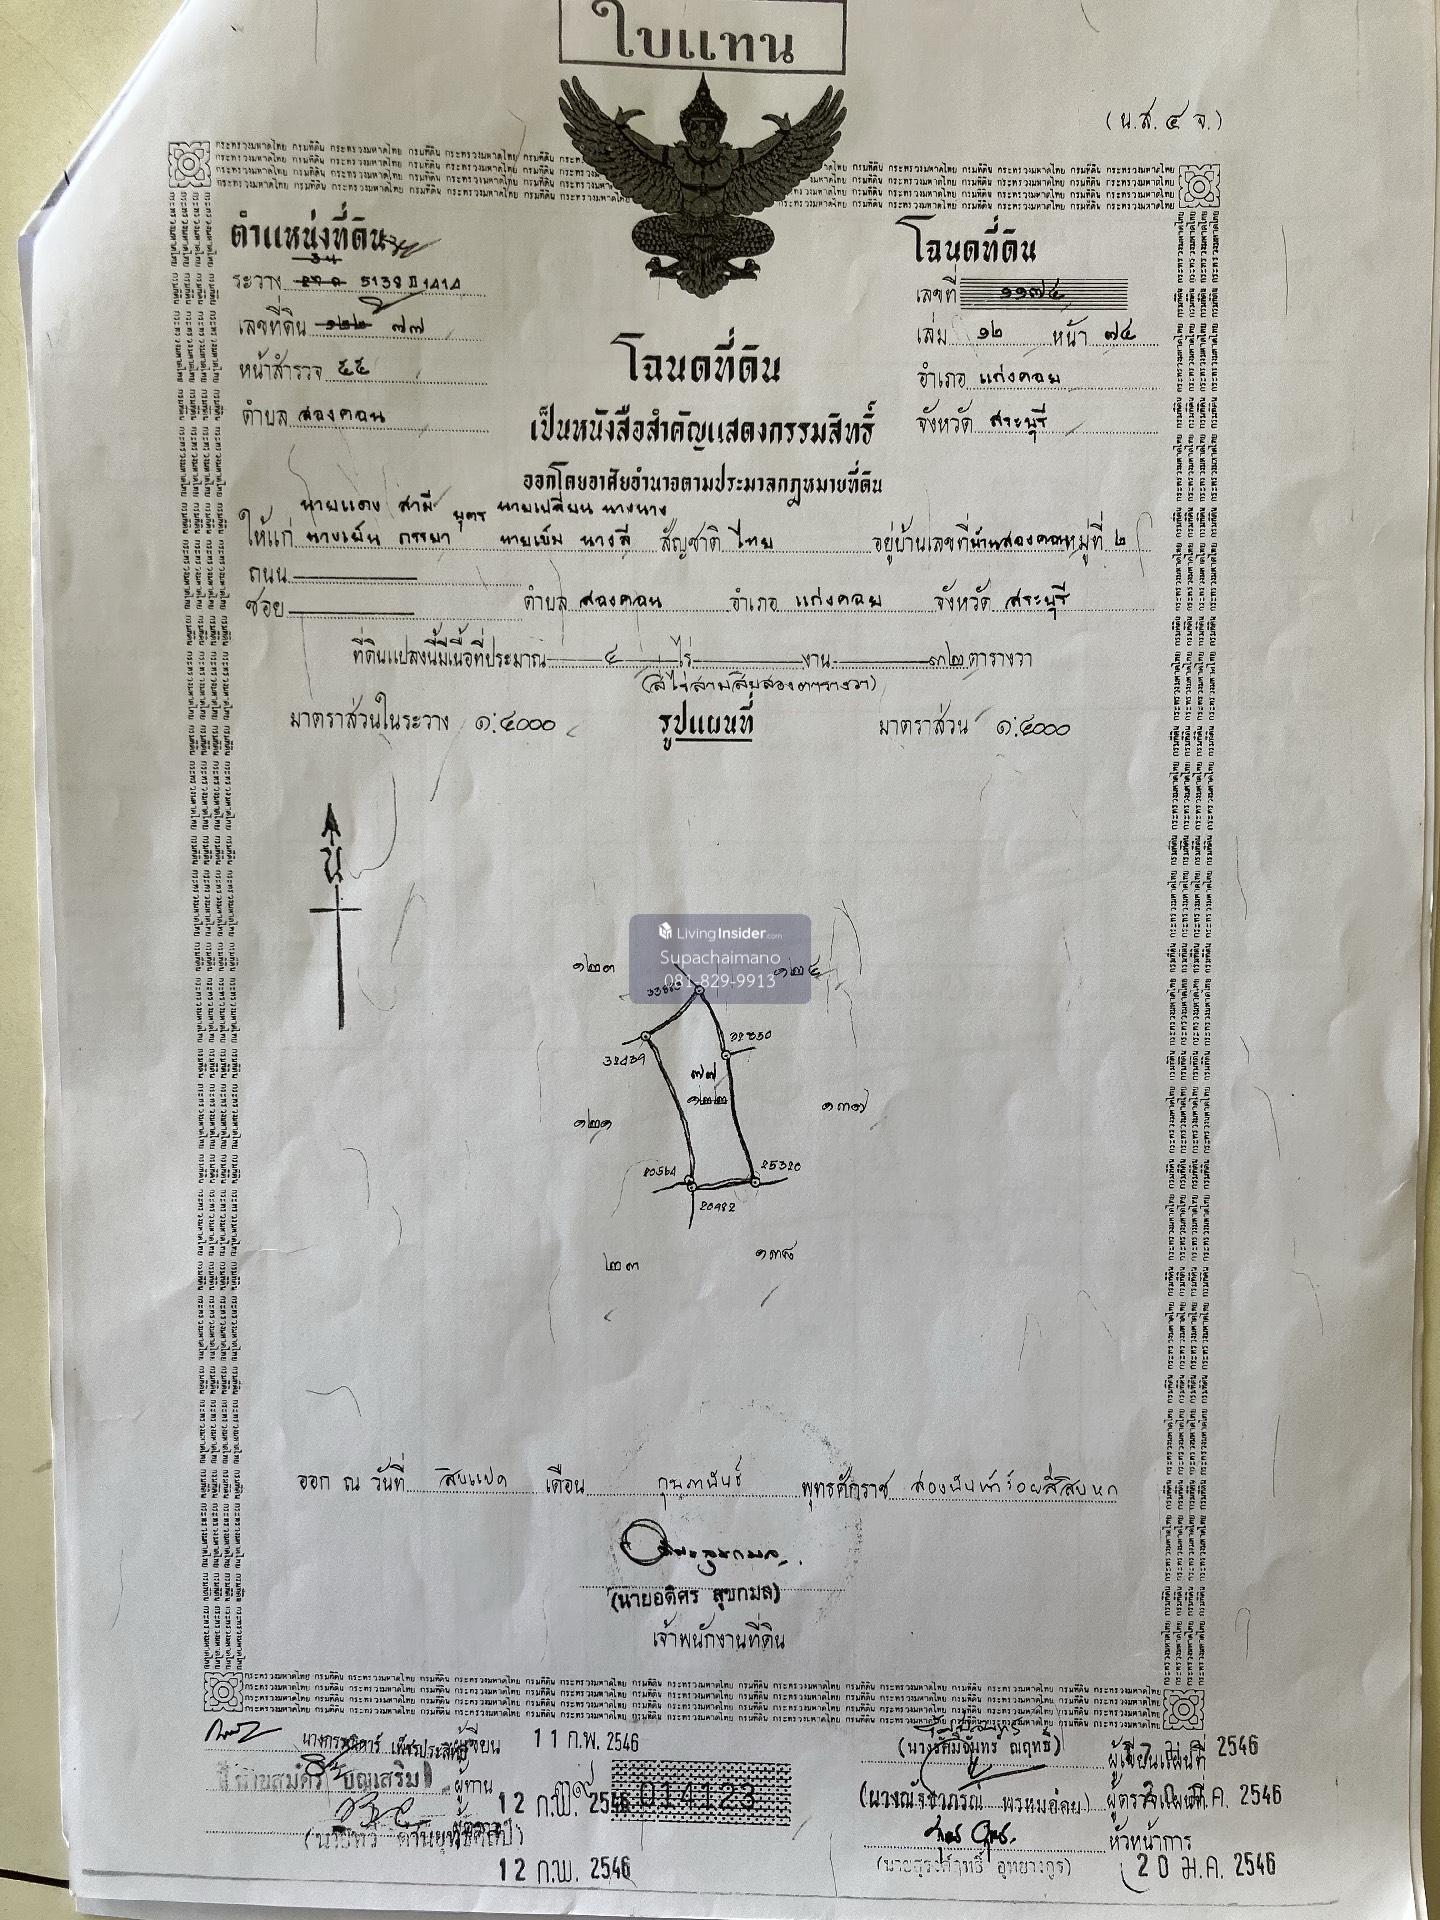 ใบแทน
(น.ส.๔ จ.)
ตำแหน่งที่ดิน
โฉนดที่ดิน
ระวาง 5138 II 1414
เลขที่ ๑๑๗๔
เลขที่ดิน ๑๒๒ ๗๗
เล่ม ๑๒ หน้า ๗๔
หน้าสำรวจ ๕๕
อำเภอ แก่งคอย
ตำบล สองคอน
จังหวัด สระบุรี
โฉนดที่ดิน
เป็นหนังสือสำคัญแสดงกรรมสิทธิ์
ออกโดยอาศัยอำนาจตามประมวลกฎหมายที่ดิน
นายแดง สามี บุตร นายเปลี่ยน นางนาง
ให้แก่ นางเย็น ภรรยา นายเข็ม นางลี สัญชาติ ไทย อยู่บ้านเลขที่ บ้านสองคอน หมู่ที่ ๒
ถนน
ซอย ตำบล สองคอน อำเภอ แก่งคอย จังหวัด สระบุรี
ที่ดินแปลงนี้มีเนื้อที่ประมาณ ๔ ไร่ งาน ๓๒ ตารางวา
(สี่ไร่สามสิบสองตารางวา)
มาตราส่วนในระวาง ๑:๔๐๐๐ รูปแผนที่ มาตราส่วน ๑:๔๐๐๐
น
LivingInsider.com
Supachaimano
081-829-9913
๑๒๓
๑๒๔
32439
32850
๗๗
๑๒๒
๑๓๗
๑๒๑
20564
25320
20482
๑๓๘
๒๓
ออก ณ วันที่ สิบแปด เดือน กุมภาพันธ์ พุทธศักราช สองพันห้าร้อยสี่สิบหก
(นายอดิศร สุขกมล)
เจ้าพนักงานที่ดิน
ผู้เขียน 11 ก.พ. 2546
ผู้เขียนแผนที่ 2546
นายสมัคร บุญเสริม ผู้ทาน 12 ก.พ. 2546
014123
(นางณัชชาภรณ์ พรหมอ่อน) ผู้ตรวจแผนที่ 2546
หัวหน้าการ
12 ก.พ. 2546
20 ม.ค. 2546